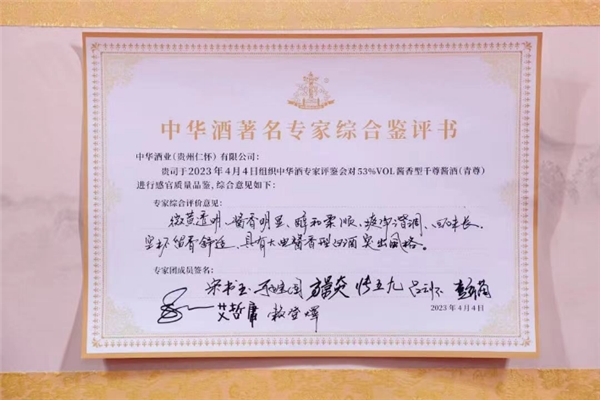 中华酒著名专家综合鉴评书
中华酒业(贵州仁怀)有限公司：
贵司于2023年4月4日组织中华酒专家评鉴会对53%VOL酱香型千尊酱酒(青尊)
进行感官质量品鉴，综合意见如下：
专家综合评价意见：
微黄透明、酱香明显、醇和柔顺、诸味谐调、回味长、
空杯留香舒适、具有大曲酱香型白酒突出风格。
专家团成员签名：
宋书玉
2023年4月4日